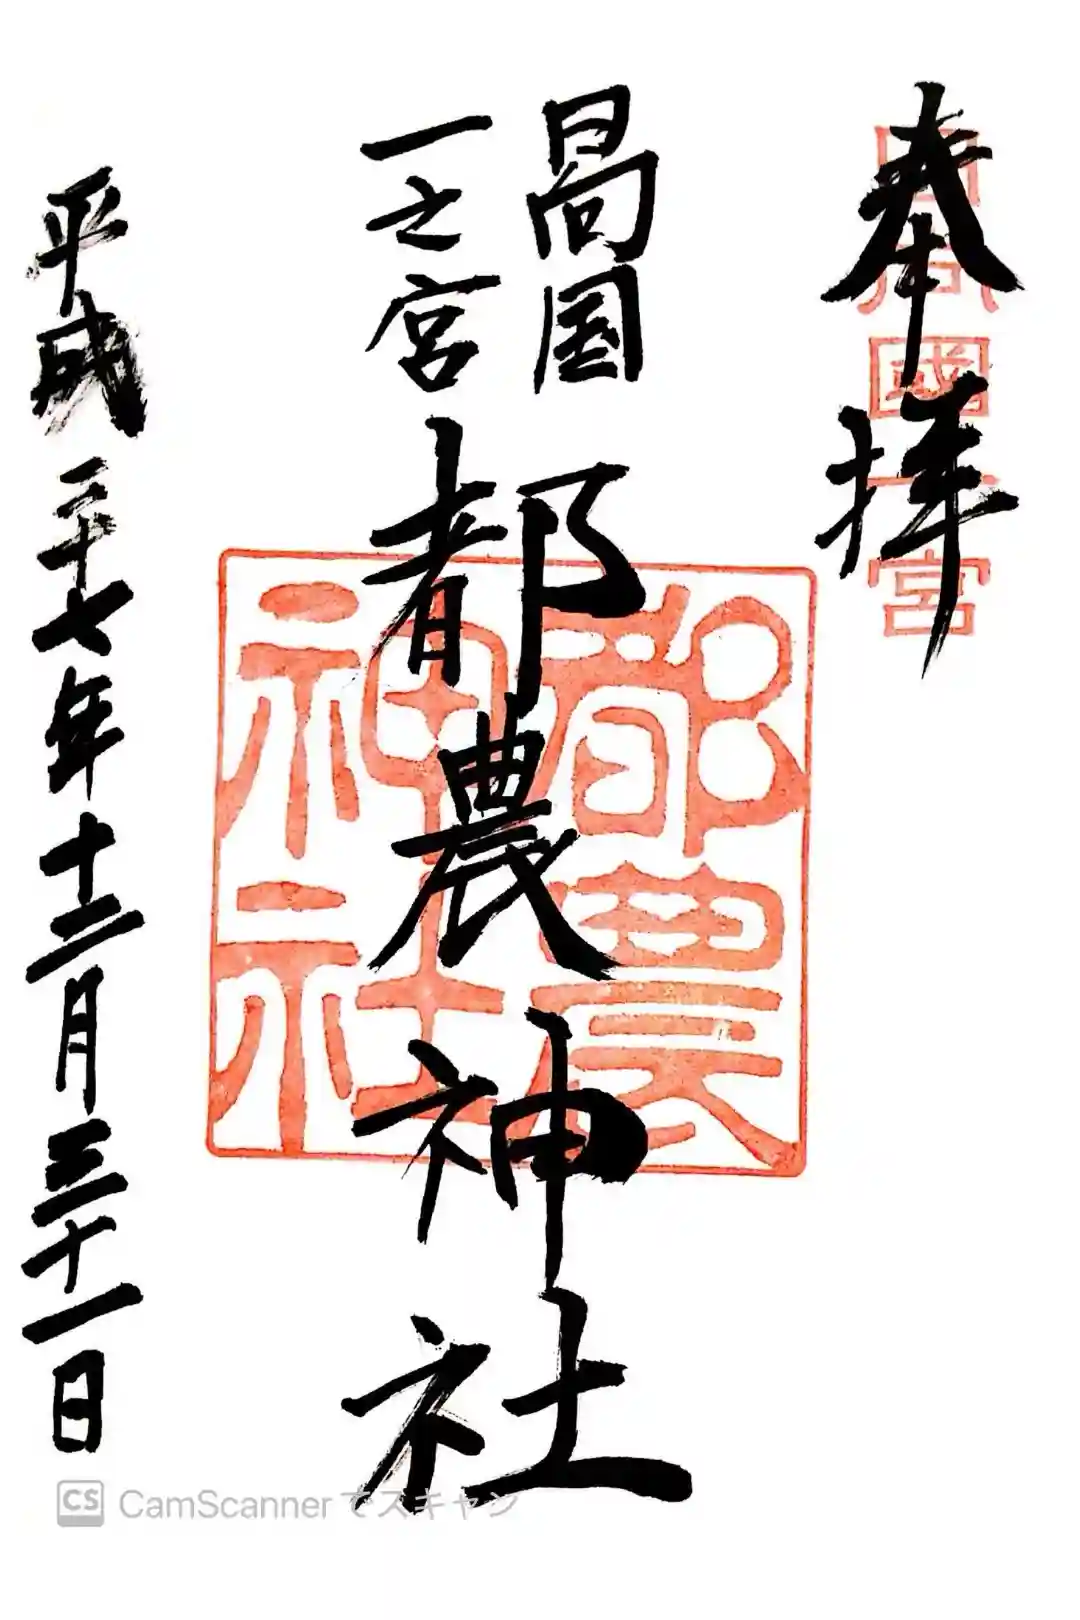 奉拝
日向國一宮
日向国
一之宮
都農神社
都農
神社
平成二十七年十二月三十一日
CS CamScannerでスキャン